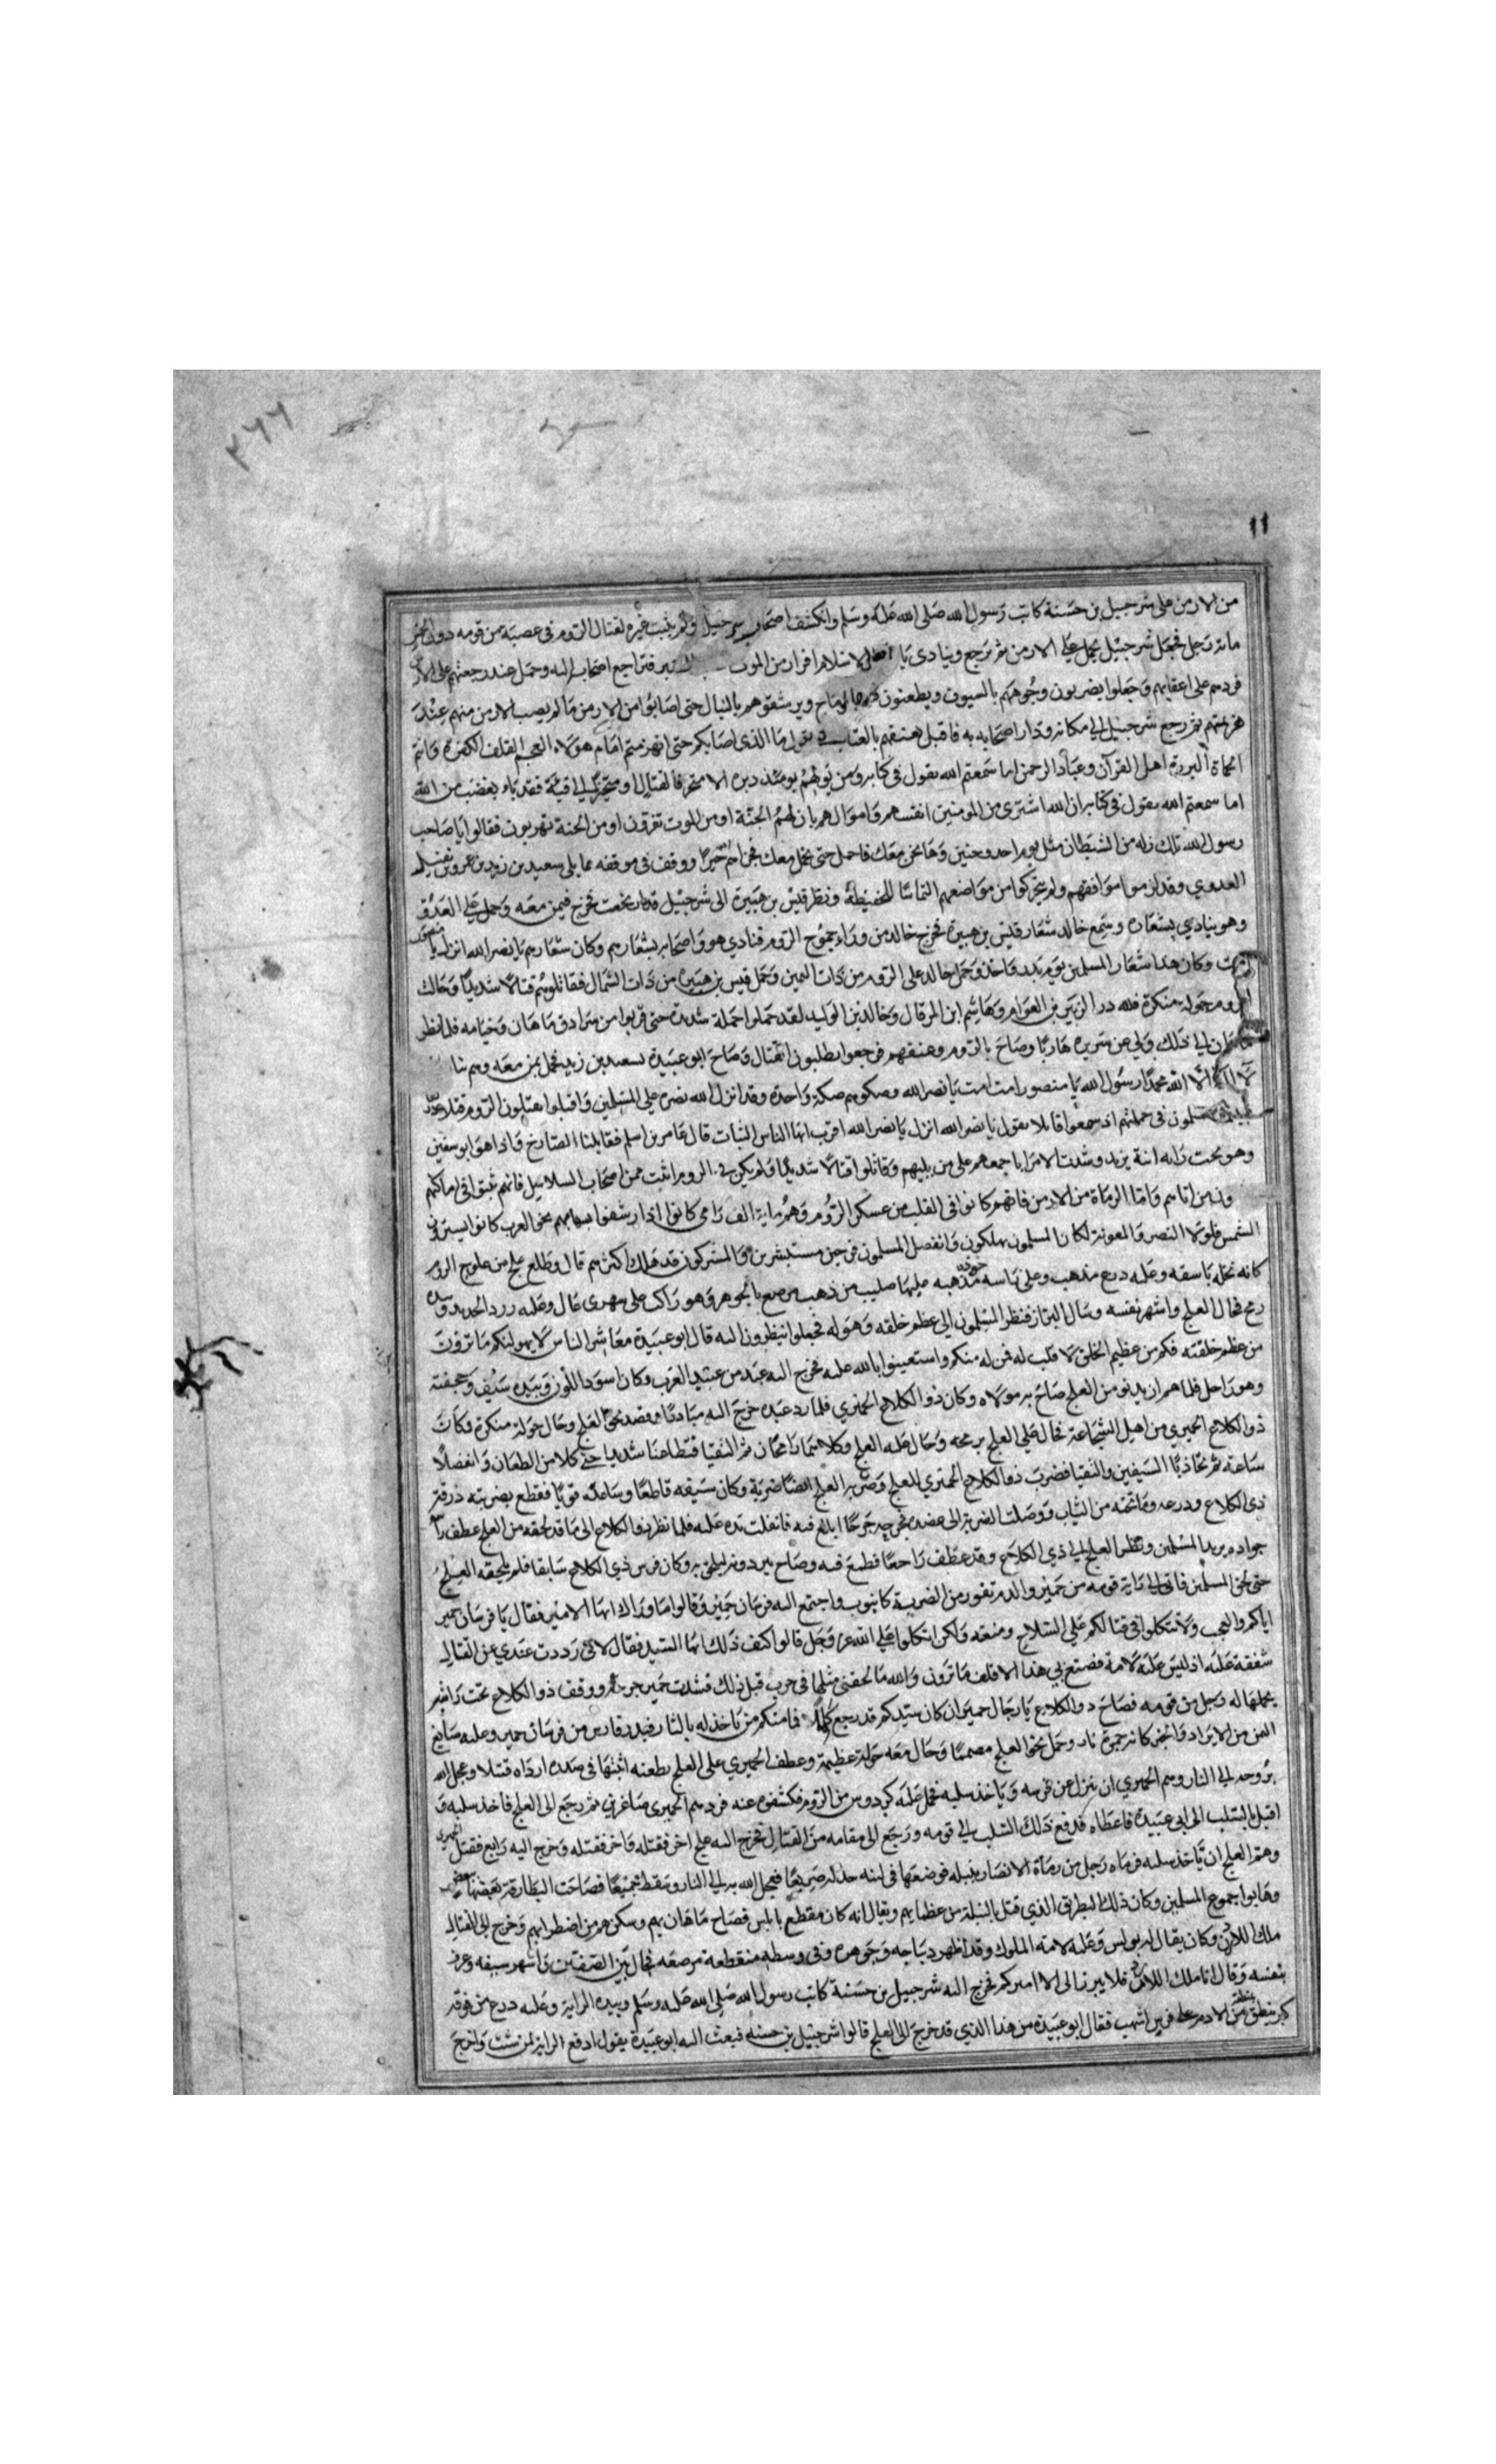 ٢٦٦
١١
من الارمن على شرحبيل بن حسنة كاتب رسول الله صلى الله عليه وسلم وانكشف اصحاب شرحبيل ولم يثبت غيره لقتال الروم في عصبة من قومه دون
مائة رجل فجعل شرحبيل يحمل على الارمن ثم يرجع وينادى يا اهل الاسلام افرار من الموت فتراجع اصحابه اليه وحمل عند رجعتهم على
فردهم على اعقابهم وجعلوا يضربون وجوههم بالسيوف ويطعنون بالرماح ويرشقوهم بالنبال حتى اصابوا من الارمن ما لم يصب الارمن منهم عند
هزيمتهم ثم رجع شرحبيل الى مكانه ودار اصحابه به فاقبل يعنفهم بالعتاب يقول ما الذى اصابكم حتى انهزمتم امام هؤلاء العجم القلف الكفرة وانتم
الحماة البررة اهل القرآن وعباد الرحمن اما سمعتم الله يقول في كتابه ومن يولهم يومئذ دبره الا متحرفا لقتال او متحيزا الى فئة فقد باء بغضب من الله
اما سمعتم الله يقول في كتابه ان الله اشترى من المومنين انفسهم واموالهم بان لهم الجنة او من الموت تفزقون او من الجنة تهربون فقالوا يا صاحب
رسول الله تلك زله من الشيطان مثل يوم احد وحنين وها نحن معك فاحمل حتى نحمل معك فجزاهم خيرا ووقف في موقفه مما يلى سعيد بن زيد بن عمرو بن نفيل
العدوي وقد لزموا مواقفهم ولم يتحركوا من مواضعهم التماسا للحفيظة ونظر قيس بن هبيرة الى شرحبيل قد فخرج فيمن معه وحمل على العدو
وهو ينادي بشعاره وسمع خالد شعار قيس بن هبيرة فخرج خالد من وراء جموع الروم فنادي هو واصحابه بشعارهم وكان شعارهم يا نصر الله انزل يا منصور
امت وكان هذا شعار المسلمين يوم بدر واحد وحمل خالد على الروم من ذات اليمين وحمل قيس بن هبيرة من ذات الشمال فقاتلوهم قتالا شديدا وجالت
الروم جولة منكرة فلله در الزبير بن العوام وهاشم ابن المرقال وخالد بن الوليد لقد حملوا حملة شديدة حتى قربوا من سرادق ماهان وخيامه فلما نظر
ماهان الى ذلك ولى عن سريره هاربا وصاح بالروم وعنفهم فرجعوا يطلبون القتال وصاح ابو عبيدة لسعيد بن زيد فحمل بمن معه وهم
لا اله الا الله محمد رسول الله يا منصور امت امت يا نصر الله وصكوهم صكة واحدة وقد انزل الله نصره على المسلمين واقبلوا يقتلون الروم قتلا
المسلمون في حملتهم اذ سمعوا قايلا يقول يا نصر الله انزل يا نصر الله اقرب ايها الناس الثبات قال عامر بن اسلم فقابلنا الصارخ فاذا هو ابو سفين
وهو تحت راية ابنه يزيد وشدت الامرا باجمعهم على من يليهم وقاتلوا قتالا شديدا ولم يكن في الروم اثبت ممن اصحاب السلاسل فانهم ثبتوا في اماكنهم
واما الرماة من الارمن فانهم كانوا في القلب من عسكر الروم وهم ماية الف رامى كانوا اذا رشفوا سهامهم نحو العرب كانوا يسترون
الشمس فلولا النصر والمعونة لكان المسلمون يهلكون وانفصل المسلمون فرحين مستبشرين والمشركون قد هلك اكثرهم قال وطلع علج من علوج الروم
كانه نخلة باسقه وعليه درع مذهب وعلى راسه خوذه مذهبه عليها صليب من ذهب مرصع بالجوهر وهو راكب على مهرى عال وعليه زرد الحديد وبيده
رمح فجال العلج واشهر نفسه وسال البراز فنظر المسلمون الى عظم خلقه وهوله فجعلوا ينظرون اليه قال ابو عبيدة معاشر الناس لا يهولنكم ما ترون
من عظم خلقته فكم من عظيم الخلق لا قلب له فمن له منكم واستعينوا بالله عليه فخرج اليه عبد من عبيد العرب وكان اسود اللون وبيده سيف وحجفته
وهو راحل فلما هم ان يدنو من العلج صاح به مولاه وكان ذو الكلاع الحميري فلما رد عبده خرج اليه مبادئا وقصد نحو العلج وجال جولة منكرة وكان
ذو الكلاع الحميري من اهل الشجاعة فحال على العلج برمحه وجال عليه العلج وكلاهما رامحان ثم التقيا فتطاعنا شديدا حتى كلا من الطعان وانفصلا
ساعة ثم تجاذبا السيفين والتقيا فضرب ذو الكلاع الحميري للعلج وضربه العلج ايضا ضربة وكان سيفه قاطعا وساعده قويا فقطع بضربته درقة
ذى الكلاع ودرعه وما تحته من الثياب ووصلت الضربة الى عضده فجرحه جرحا ابلغ فيه فانفلت يده عليه فلما نظر ذو الكلاع الى ما قد لحقه من العلج عطف راس
جواده يريد المسلمين ونظر العلج الى ذي الكلاع وقد عطف راجعا فطمع فيه وصاح ليلحق به وكان فرس ذي الكلاع سابقا فلم يلحقه العلج
حتى لحق المسلمين فاتى الى راية قومه من حمير والدم تفور من الضربة كانبوب واجتمع اليه فرسان حمير وقالوا ما وراك ايها الامير فقال يا فرسان حمير
اياكم والعجب ولا تتكلوا في قتالكم على السلاح ومنعه ولكن اتكلوا على الله عز وجل قالوا كيف ذلك ايها السيد فقال لاني رددت عبدي عن القتال
شفقة عليه اذ ليس عليه لامة فصنع بي هذا الاقلف ما ترون والله ما لحقني مثلها في حرب قبل ذلك فشدت حمير جرحه ووقف ذو الكلاع تحت رايته
يحملها له رجل من قومه فصاح ذو الكلاع يا رجال حمير ان كان سيدكم قد رجع فما منكم من ياخذ له بالثار فبدر فارس من فرسان حمير وعليه صنايع
اليمن من الابراد والخز كانه جمرة نار وحمل نحو العلج مصمما وجال معه جولة عظيمة وعطف الحميري على العلج بطعنه اثبتها في صدره ارداه قتيلا وعجل الله
بروحه الى النار وهم الحميري ان ينزل عن فرسه وياخذ سلبه فحمل عليه كردوس من الروم فكشفوه عنه فردهم الحميرى صاغرين ثم رجع الى العلج فاخذ سلبه و
اقبل بالسلب الى ابى عبيدة فاعطاه فدفع ذلك السلب الى قومه ورجع الى مقامه من القتال فخرج اليه علج اخر فقتله واخر فقتله وخرج اليه رابع فقتل الحميرى
وهم العلج ان ياخذ سلبه فرماه رجل من رماة الانصار بنبله فوضعها في لبته جدله صريعا فعجل الله به الى النار وسقط جميعا فصاحت البطارقة بعضها
وهابوا جموع المسلمين وكان ذلك البطريق الذي قتل بالنبلة من عظمايهم ويقال انه كان مقطع بابلس فصاح ماهان بهم وسكن هم من اضطرابهم وخرج الى القتال
ملك اللان وكان يقال له بولس وعليه لامته الملوك وقد اظهر ديباجه وجوهره وفي وسطه منقطعة مرصعه فجال بين الصفين واشهر سيفه وعرف
بنفسه وقال انا ملك اللان فلا يبرز الى الا اميركم فخرج اليه شرحبيل بن حسنة كاتب رسول الله صلى الله عليه وسلم وبيده الراية وعليه درع من فوقه
منطقة من الادم على فرس اشهب فقال ابو عبيدة من هذا الذي قد خرج الى العلج قالوا شرحبيل بن حسنه فبعث اليه ابو عبيدة يقول ادفع الراية لمن شئت واخرج